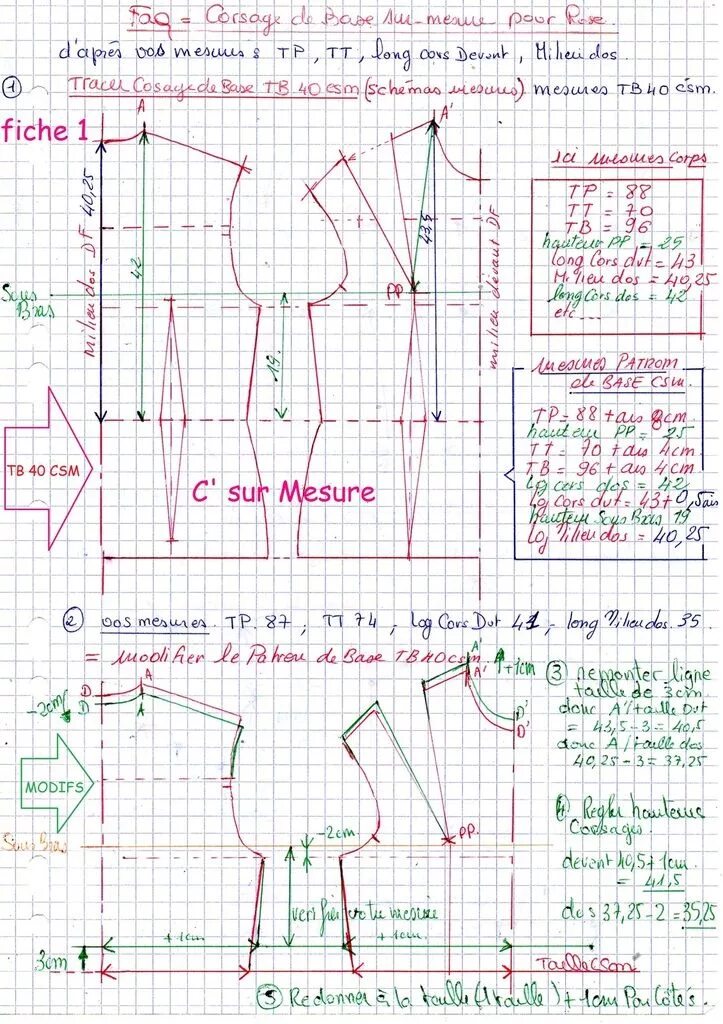 Faq = Corsage de Base sur-mesure pour Rose.
d'après vos mesures TP, TT, long cors Devant, Milieu dos.
1 Tracer Cosage de Base TB.40 csm (schémas mesures) mesures TB 40 csm.
fiche 1
A
A'
milieu dos DF 40,25
42
Sous Bras
19.
43,5
PP
milieu devant DF
ici mesures corps
TP = 88
TT = 70
TB = 96
hauteur PP = 25
long Cors dvt = 43
Milieu dos = 40,25
long Cors dos = 42
etc....
mesures PATRON
de BASE CSM.
TP = 88 + ais 8cm
hauteur PP = 25
TT = 70 + ais 4cm
TB = 96 + ais 4cm
Lg cors dos = 42
Lg Cors dvt = 43 + 0,5 ais
hauteur Sous Bras 19
Lg Milieu dos = 40,25
TB 40 CSM
C' sur Mesure
2 vos mesures. TP. 87, TT 74, Log Cors Dvt 41, - long Milieu dos. 35
= modifier le Patron de Base TB 40 csm.
-2cm
D
D
A
A
A'
A'
+1cm
D'
D'
3 remonter ligne
taille de 3cm.
donc A'/taille Dvt
= 43,5 - 3 = 40,5
donc A/taille dos
40,25 - 3 = 37,25
MODIFS
Sous Bras
-2cm
PP.
4 Regler hauteurs
Corsages.
devant 40,5 + 1cm
= 41,5
dos 37,25 - 2 = 35,25
verifier votre mesure
+1cm
+1cm
3cm
Taille CSM
5 Redonner à la taille (1 taille) + 1cm Par Côtés.